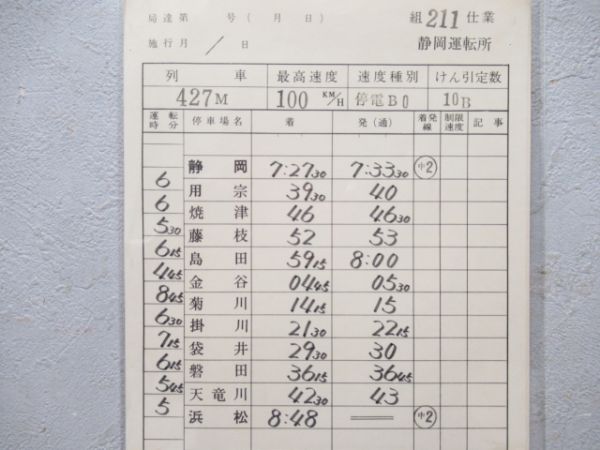 局達第 号(月 日) 組211仕業
施行月 / 日 静岡運転所
列車 最高速度 速度種別 けん引定数
427M 100 KM/H 停電B0 10B
運転時分 停車場名 着 発(通) 着発線 制限速度 記事
静岡 7:27 30 7:33 30 中2
6
用宗 39 30 40
6
焼津 46 46 30
5 30
藤枝 52 53
6 15
島田 59 15 8:00
4 45
金谷 04 45 05 30
8 45
菊川 14 15 15
6 30
掛川 21 30 22 15
7 15
袋井 29 30 30
6 15
磐田 36 15 36 45
5 45
天竜川 42 30 43
5
浜松 8:48 中2